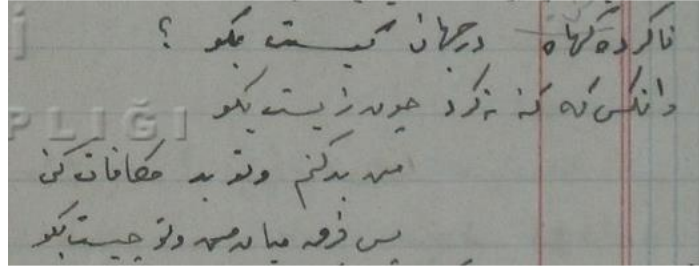 ناکرده گناه درجهان کیست بگو ؟
وانکس که گنه نکرد چون زیست بگو
من بد کنم وتو بد مکافات کنی
پس فرق میان من وتو چیست بگو
PLIĞI